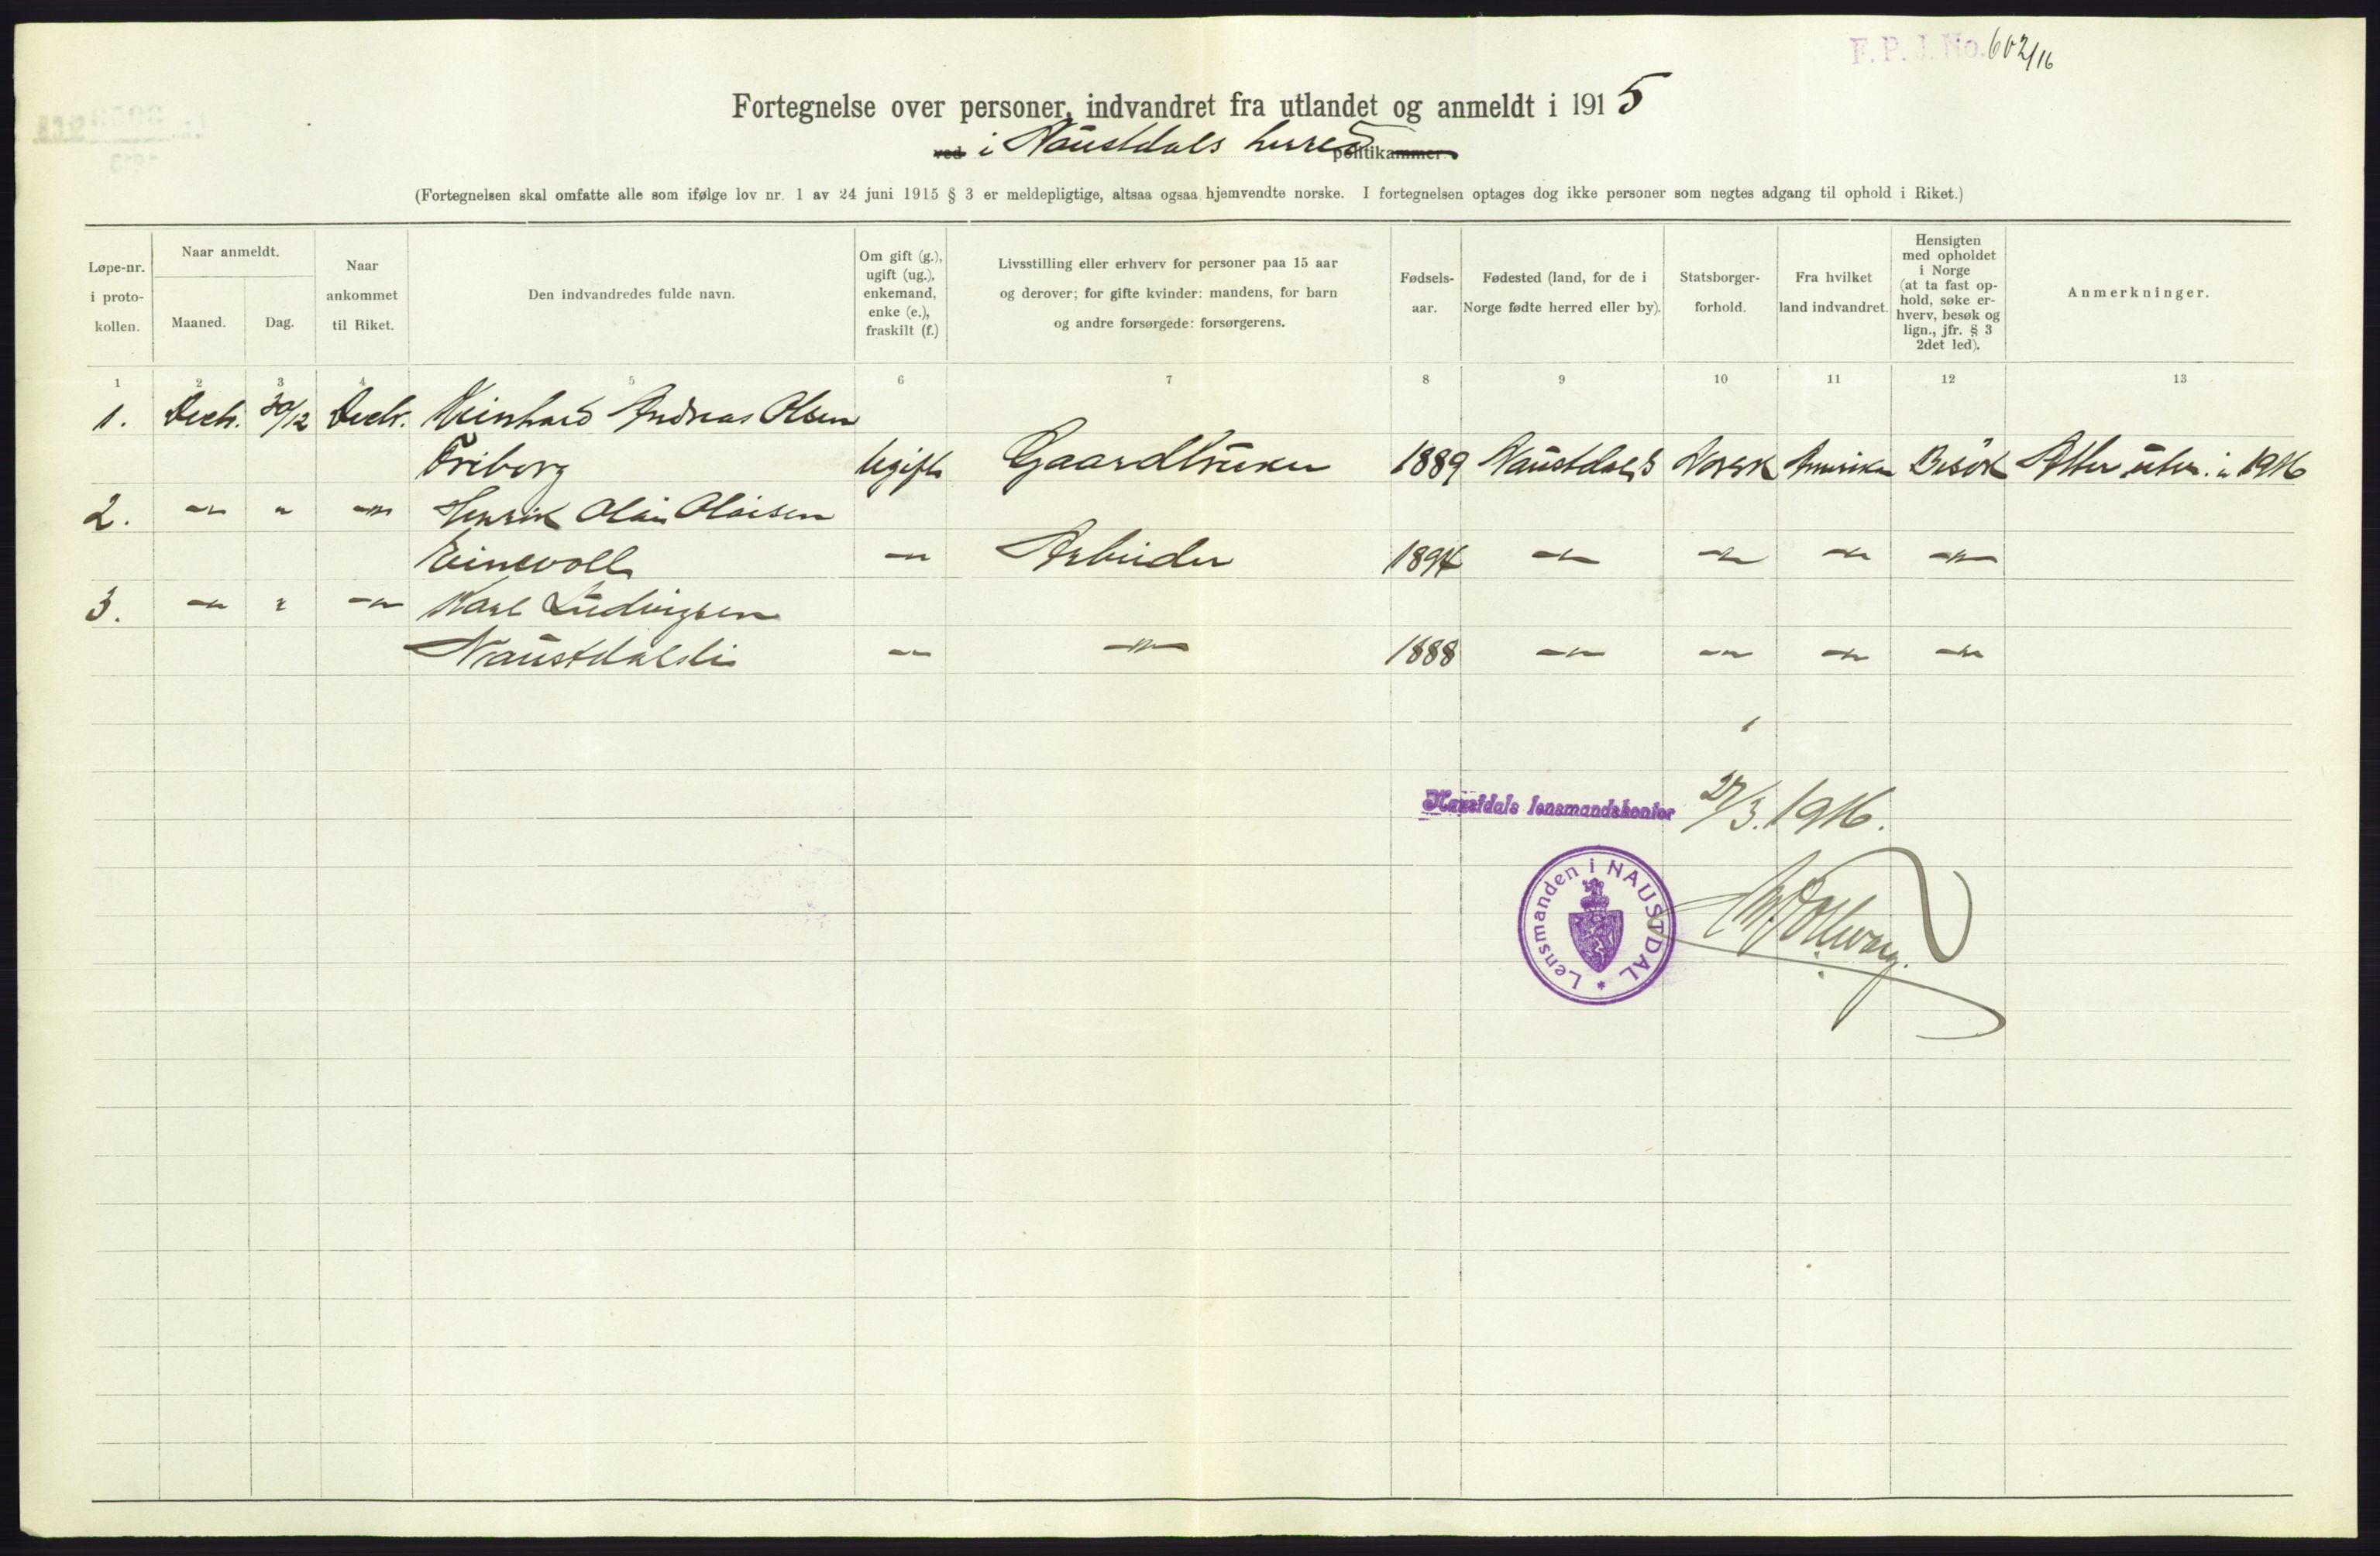 F. P. J. No. 602/16
Fortegnelse over personer, indvandret fra utlandet og anmeldt i 1915
ved i Naustdals herred politikammer
(Fortegnelsen skal omfatte alle som ifølge lov nr. 1 av 24 juni 1915 § 3 er meldepligtige, altsaa ogsaa hjemvendte norske. I fortegnelsen optages dog ikke personer som negtes adgang til ophold i Riket.)
Løpe-nr.
i proto-
kollen.
Naar anmeldt.
Maaned.
Dag.
Naar
ankommet
til Riket.
Den indvandredes fulde navn.
Om gift (g.),
ugift (ug.),
enkemand,
enke (e.),
fraskilt (f.)
Livsstilling eller erhverv for personer paa 15 aar
og derover; for gifte kvinder: mandens, for barn
og andre forsørgede: forsørgerens.
Fødsels-
aar.
Fødested (land, for de i
Norge fødte herred eller by).
Statsborger-
forhold.
Fra hvilket
land indvandret.
Hensigten
med opholdet
i Norge
(at ta fast op-
hold, søke er-
hverv, besøk og
lign., jfr. § 3
2det led).
Anmerkninger.
1 2 3 4 5 6 7 8 9 10 11 12 13
1. Decbr. 30/12 Decbr. Meinhard Andreas Olsen
Friborg Ugift Gaardbruker 1889 Naustdal Norsk Amerika Besøk Atter utv. i 1916
2. -"- " -"- Henrik Olai Olaisen
Einevoll -"- Arbeider 1894 -"- -"- -"- -"-
3. -"- " -"- Karl Ludvigsen
Naustdalsli -"- -"- 1888 -"- -"- -"- -"-
Naustdals lensmandskontor 27/3. 1916.
Lensmanden i NAUSTDAL *